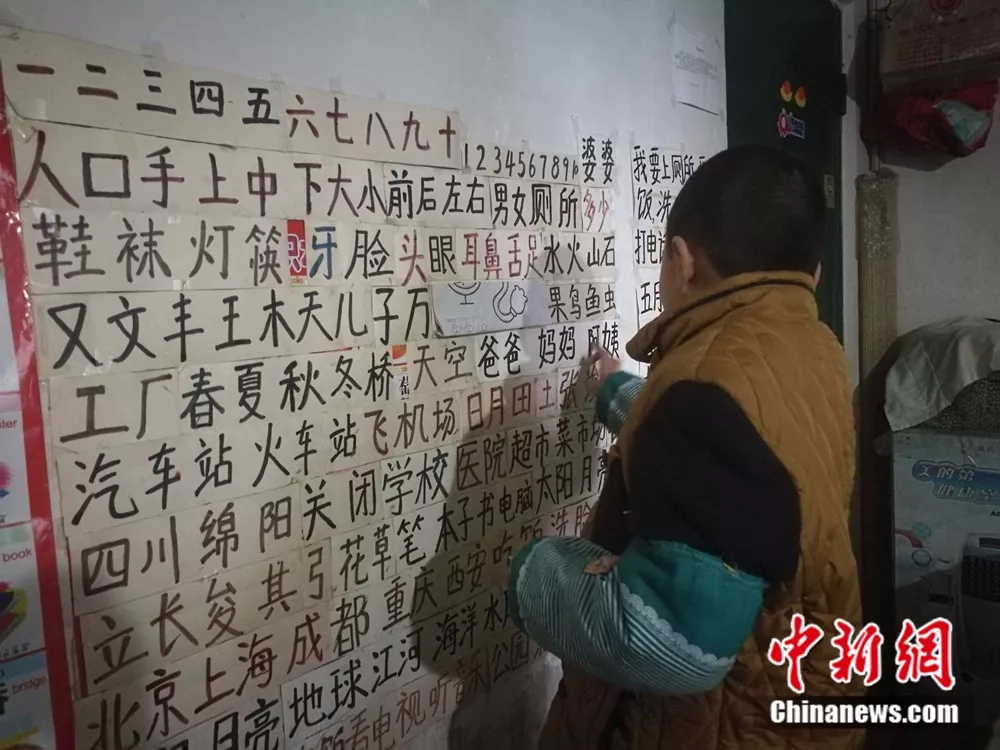 一二三四五六七八九十
12345678910 婆婆
我要上厕所
人口手上中下大小前后左右男女厕所多少
饭,洗
鞋袜灯筷牙脸头眼耳鼻舌足水火山石
打电
又文丰王木天儿子万 果鸟鱼虫
五月
工厂春夏秋冬桥天空爸爸妈妈阿姨
汽车站火车站飞机场日月田土张
四川绵阳关闭学校医院超市菜市场
立长俊共引花草笔本子书电脑太阳月亮
北京上海成都重庆西安吃饭洗脸
亮地球江河海洋水
看电视听音乐公园
book
bridge
文的弟
中新网
Chinanews.com